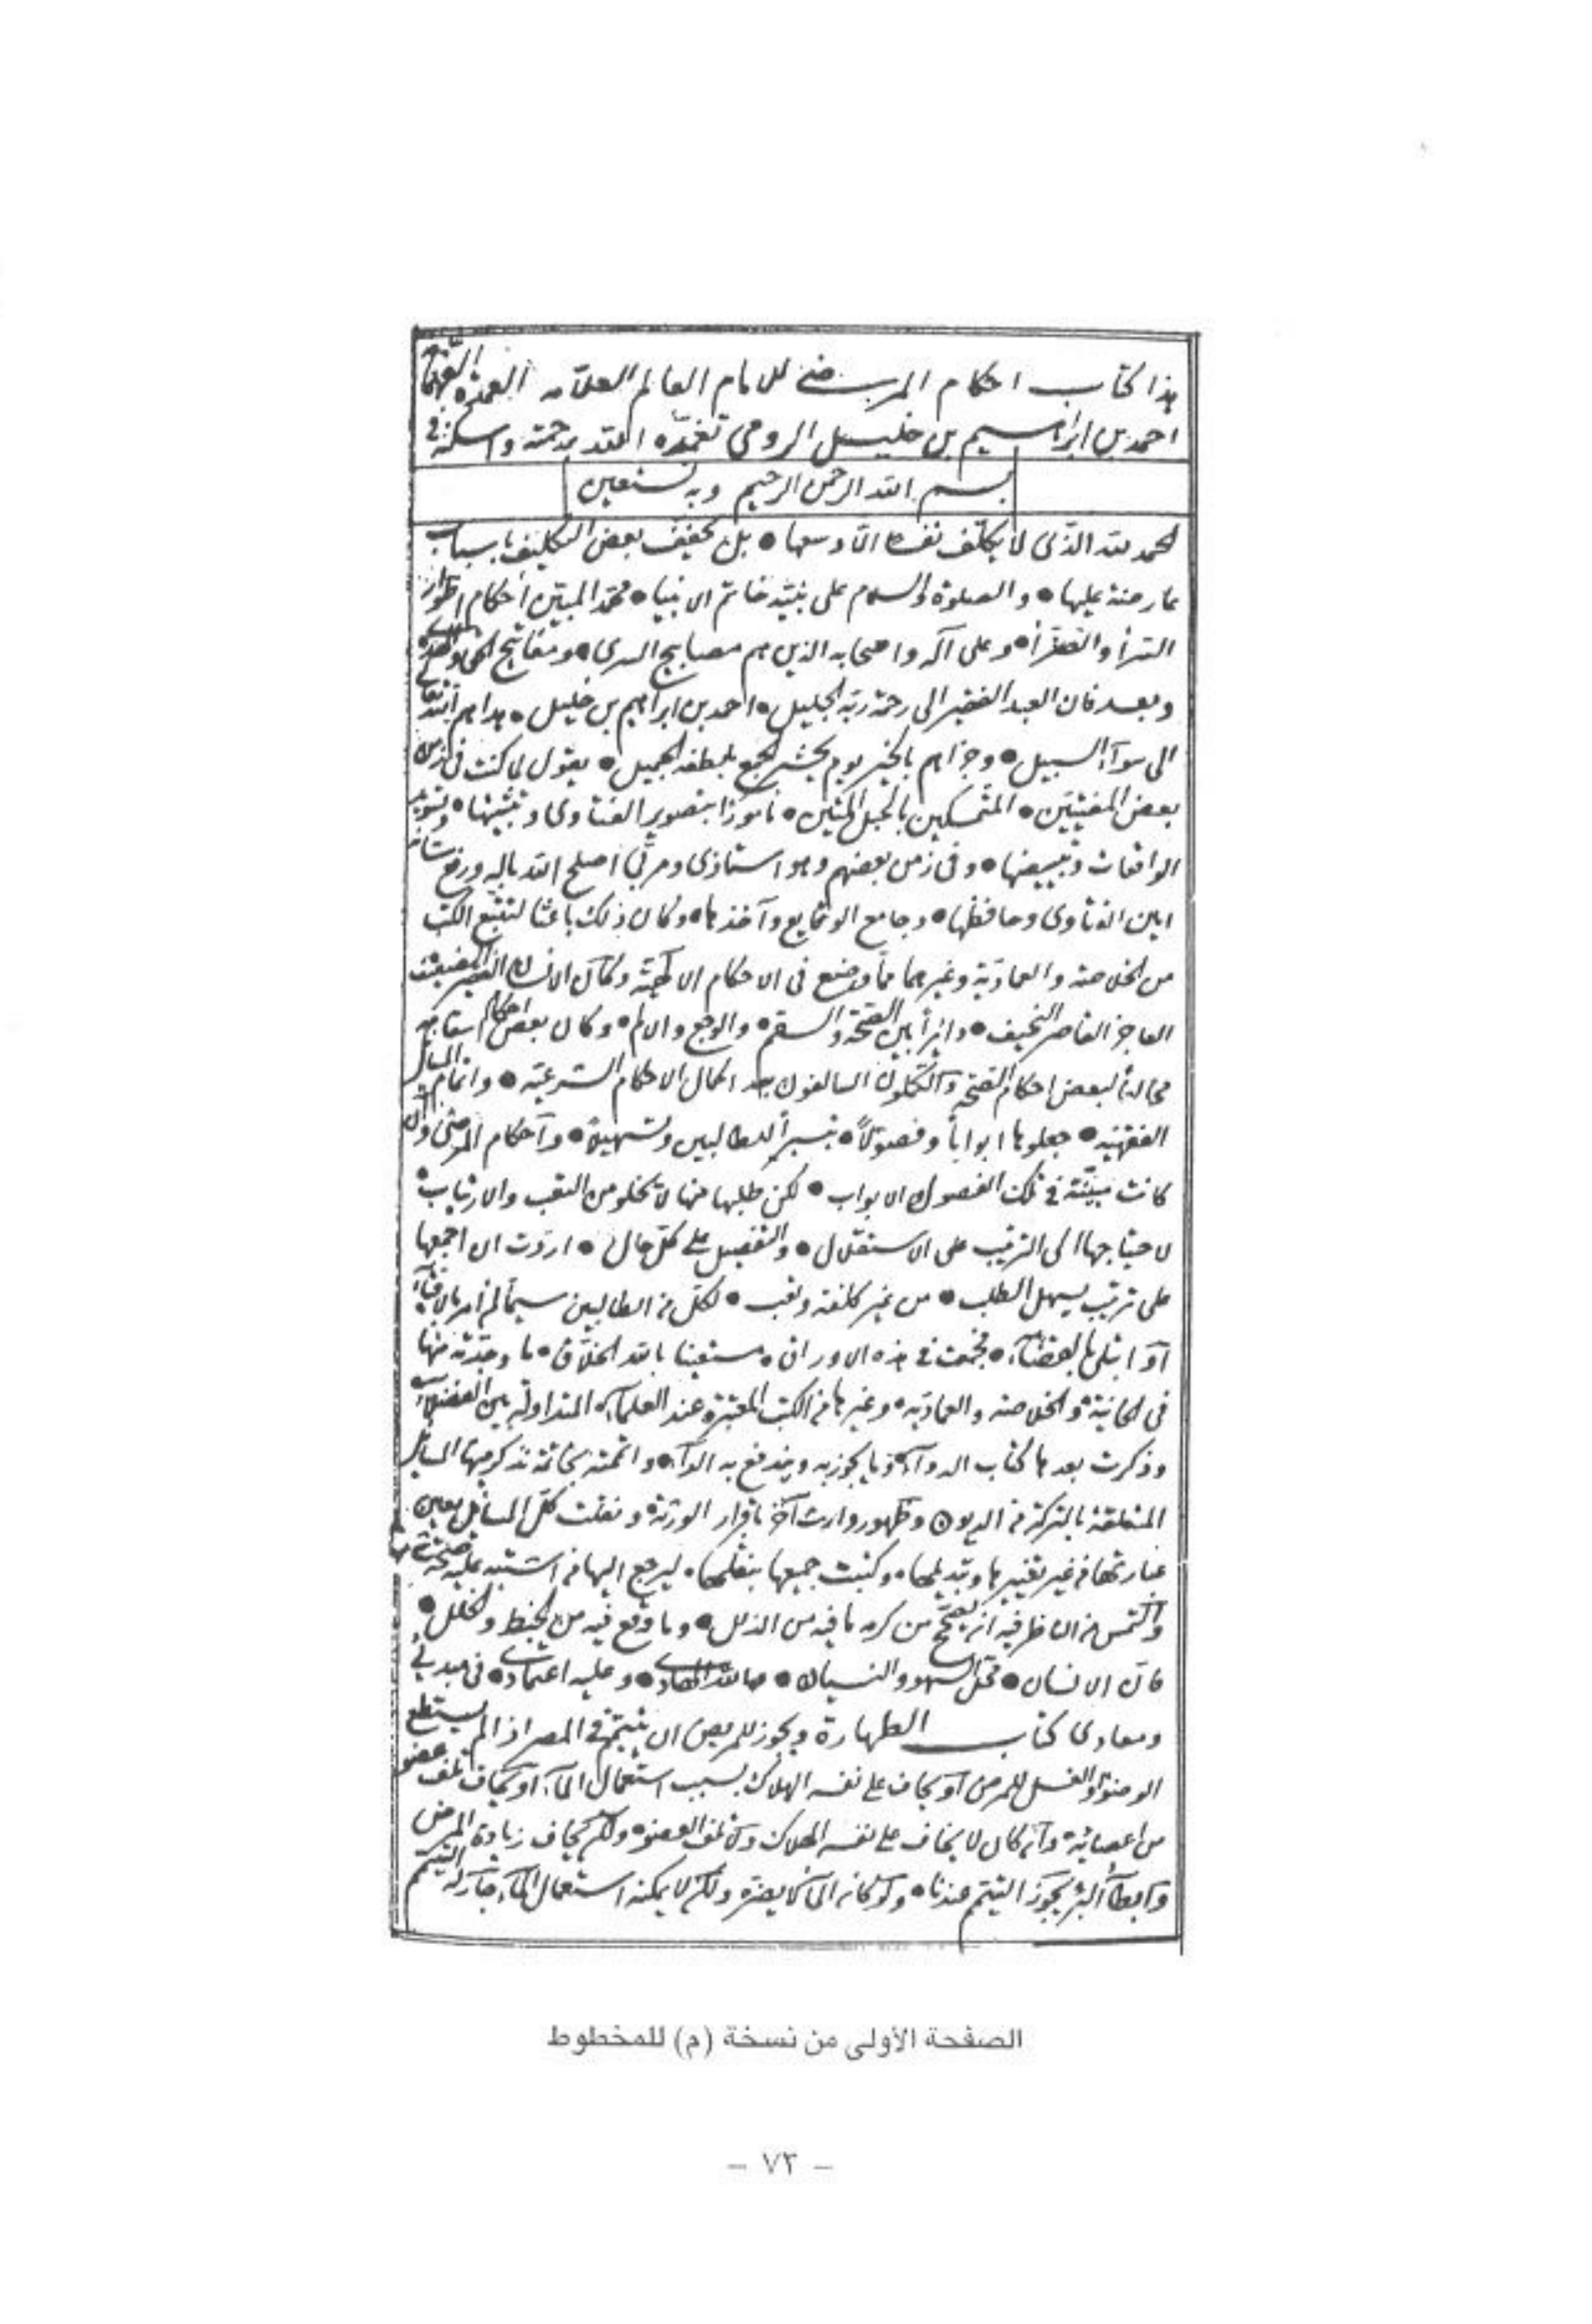 هذا كتاب احكام المرضى للامام العالم العلامه العمدة الفهامة
احمد بن ابراهيم بن خليل الرومي تغمده الله برحمته واسكنه في
بسم الله الرحمن الرحيم وبه نستعين
الحمد لله الذى لا يكلف نفسا الا وسعها • بل يخفف بعض التكليف باسباب
عارضة عليها • والصلوة والسلام على نبيه خاتم الانبيا • محمد المبين احكام اطوار
السرأ والضرأ • وعلى آله واصحابه الذين هم مصابيح الدجى • ومفاتيح
وبعد فان العبد الفقير الى رحمة ربه الجليل • احمد بن ابراهيم بن خليل • هداهم الله تعالى
الى سوآء السبيل • وجزاهم بالخير يوم يحشر الجمع بلطفه الجميل • يقول لما كنت فى زمن
بعض المفتيين • المتمسكين بالحبل المتين • مأمورا بتصوير الفتاوى وتثبيتها • وتسويد
الواقعات وتبييضها • وفى زمن بعضهم وهو استاذى ومربي اصلح الله باله ورفع شانه
امين الفتاوى وحافظها • وجامع الوقايع وآخذها • وكان ذلك باعثا لتتبع الكتب
من الخلاصه والعماديه وغيرهما مما وضع فى الاحكام الالهية وكان الانسان الفقير الضعيف
العاجز القاصر النحيف • دايرا بين الصحة والسقم • والوجع والالم • وكان بعض احكام اسقامه
مخالفا لبعض احكام الصحة والسالفون بعد اكمال الاحكام الشرعيه • واتمام المسائل
الفقهيه • جعلوها ابوابا وفصولا • تيسيرا للطالبين وتسهيلا • واحكام المرضى وان
كانت مبينة فى تلك الفصول الابواب • لكن طلبها منها لا يخلو من التعب والارتياب •
لاحتياجها الى الترتيب على الاستقلال • والتفصيل على كل حال • اردت ان اجمعها
على ترتيب يسهل الطلب • من غير كلفة وتعب • لكل من الطالبين سيما لمن امر بالافتاء
او ابتلى بالقضاء • فجمعت فى هذه الاوراق • مستعينا بالله الخلاق • ما وجدته منها
فى الخانية والخلاصه والعماديه • وغيرها من الكتب المعتبرة عند العلماء • المتداولة بين الفضلاء
وذكرت بعدها كتاب الدوآء وما يجوز به ويندفع به الدآء • واتممته بخاتمة تذكر فيها المسائل
المتعلقة بالتركة من الديون وظهور وارث آخر باقرار الورثة ونقلت كل المسائل بعين
عبارتها من غير تغييرها وتبديلها • وكتبت جميعها بنقلها • ليرجع اليها من اشتبه عليه صحتها
والتمس من الناظر فيه ان يصحح من كرمه ما فيه من الذلل • وما وقع فيه من الخبط والخلل •
فان الانسان • محل السهو والنسيان • والله الهادى • وعليه اعتمادى • فى مبدئي
ومعادى كتاب الطهارة ويجوز للمريض ان يتيمم فى المصر اذا لم يستطع
الوضوء والغسل للمرض او يخاف على نفسه الهلاك بسبب استعمال الماء او يخاف تلف عضو
من اعضائه وان كان لا يخاف على نفسه الهلاك ولا تلف العضو • ولكن يخاف زيادة المرض
وابطآ البرء يجوز التيمم عندنا • ولو كان المآ لا يضره ولكن لا يمكنه استعمال المآء جاز له التيمم
الصفحة الأولى من نسخة (م) للمخطوط
– ٧٣ –